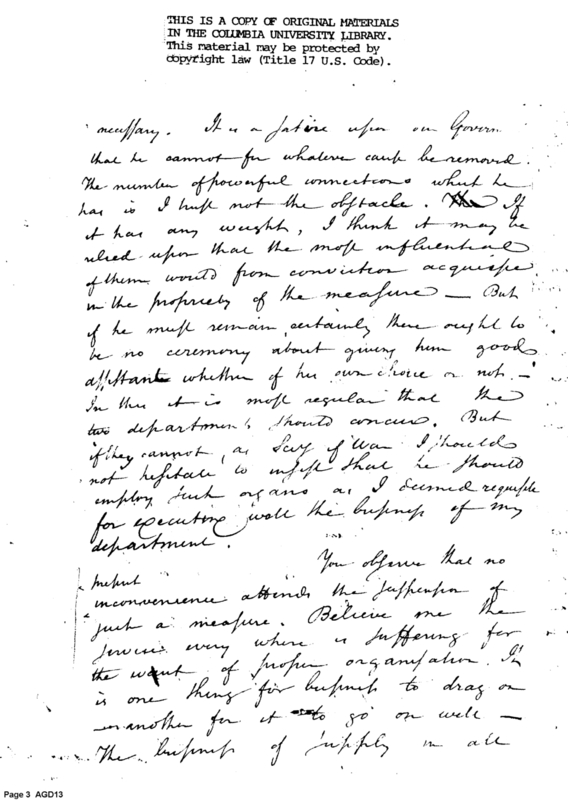 THIS IS A COPY OF ORIGINAL MATERIALS
IN THE COLUMBIA UNIVERSITY LIBRARY.
This material may be protected by
copyright law (Title 17 U.S. Code).
necessary. It is a satire upon our Govern
that he cannot for whatever cause be removed.
The number of powerful connections which he
has is I trust not the obstacle. If
it has any weight, I think it may be
relied upon that the most influential
of them would from conviction acquiesce
in the propriety of the measure — But
if he must remain, certainly there ought to
be no ceremony about giving him good
assistants whether of his own choice or not. —
In this it is most regular that the
two departments should concur. But
if they cannot, as Secy of War I should
not hesitate to insist that he should
employ such organs as I deemed requisite
for executing well the business of my
department.
You observe that no
present
inconvenience attends the suspension of
such a measure. Believe me the
service every where is suffering for
the want of proper organisation. It
is one thing for business to drag on
— another for it to go on well —
The business of supply in all
Page 3 AGD13